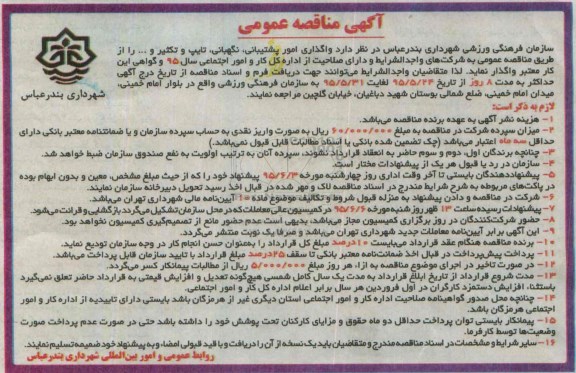 آگهی مناقصه عمومی
سازمان فرهنگی ورزشی شهرداری بندرعباس در نظر دارد واگذاری امور پشتیبانی، نگهبانی، تایپ و تکثیر و ... را از
طریق مناقصه عمومی به شرکت‌های واجدالشرایط و دارای صلاحیت از اداره کل کار و امور اجتماعی سال ۹۵ و گواهی این
کار معتبر واگذار نماید. لذا متقاضیان واجدالشرایط می‌توانند جهت دریافت فرم و اسناد مناقصه از تاریخ درج آگهی
حداکثر به مدت ۸ روز از تاریخ ۹۵/۵/۲۴ لغایت ۹۵/۵/۳۱ به سازمان فرهنگی ورزشی واقع در بلوار امام خمینی،
میدان امام خمینی، ضلع شمالی بوستان شهید دباغیان، خیابان گلچین مراجعه نمایند.
شهرداری بندرعباس
لازم به ذکر است:
۱- هزینه نشر آگهی به عهده برنده مناقصه می‌باشد.
۲- میزان سپرده شرکت در مناقصه به مبلغ ۶۰/۰۰۰/۰۰۰ ریال به صورت واریز نقدی به حساب سپرده سازمان و یا ضمانتنامه معتبر بانکی دارای
حداقل سه ماه اعتبار می‌باشد (چک تضمین شده بانکی یا اسناد مطالبات قابل قبول نمی‌باشد.)
۳- چنانچه برندگان اول، دوم و سوم حاضر به انعقاد قرارداد نشوند، سپرده آنان به ترتیب اولویت به نفع صندوق سازمان ضبط خواهد شد.
۴- سازمان در رد یا قبول هر یک از پیشنهادات مختار است.
۵- پیشنهاددهندگان بایستی تا آخر وقت اداری روز چهارشنبه مورخه ۹۵/۶/۳ پیشنهاد خود را که از حیث مبلغ مشخص، معین و بدون ابهام بوده
در پاکت‌های مربوطه به شرح شرایط مندرج در اسناد مناقصه لاک و مهر شده در قبال اخذ رسید تحویل دبیرخانه سازمان نمایند.
۶- شرکت در مناقصه و دادن پیشنهاد به منزله قبول شروط و تکالیف موضوع ماده ۱۰ آیین‌نامه مالی شهرداری تهران می‌باشد.
۷- پیشنهادات رسیده ساعت ۱۳ ظهر روز شنبه مورخه ۹۵/۶/۶ در کمیسیون عالی معاملات که در محل سازمان تشکیل می‌گردد بازگشایی و قرائت می‌شود.
۸- حضور شرکت‌کنندگان در روز برگزاری کمیسیون مجاز می‌باشد، بدیهی است عدم حضور مانع از تصمیم‌گیری کمیسیون نخواهد بود.
۹- این آگهی برابر آیین‌نامه معاملات جدید شهرداری تهران می‌باشد و صرفا یک نوبت منتشر می‌گردد.
۱۰- برنده مناقصه هنگام عقد قرارداد می‌بایست ۱۰درصد مبلغ کل قرارداد را به‌عنوان حسن انجام کار در وجه سازمان تودیع نماید.
۱۱- پرداخت پیش‌پرداخت در قبال اخذ ضمانت‌نامه معتبر بانکی تا سقف ۲۵درصد مبلغ قرارداد با تایید سازمان قابل پرداخت می‌باشد.
۱۲- در صورت تاخیر در اجرای موضوع مناقصه به ازاء هر روز مبلغ ۵/۰۰۰/۰۰۰ ریال از مطالبات پیمانکار کسر می‌گردد.
۱۳- مدت شروع قرارداد از تاریخ ابلاغ قرارداد به مدت یک سال کامل شمسی هیچ‌گونه تعدیل و افزایش قیمتی به قرارداد حاضر تعلق نمی‌گیرد
باستثناء افزایش دستمزد کارگران در اول فروردین هر سال برابر اعلام اداره کل کار و امور اجتماعی.
۱۴- چنانچه محل صدور گواهینامه صلاحیت اداره کار و امور اجتماعی استان دیگری غیر از هرمزگان باشد بایستی دارای تاییدیه از اداره کار و امور
اجتماعی هرمزگان باشد.
۱۵- پیمانکار بایستی توان پرداخت حداقل دو ماه حقوق و مزایای کارکنان تحت پوشش خود را داشته باشد حتی در صورت عدم پرداخت صورت
وضعیت‌ها توسط کارفرما.
۱۶- سایر شرایط و مشخصات در اسناد مناقصه مندرج و متقاضیان باید یک نسخه از آن را دریافت و با قید قبولی امضاء و به پیشنهاد خود ضمیمه تسلیم نمایند.
روابط عمومی و امور بین‌المللی شهرداری بندرعباس